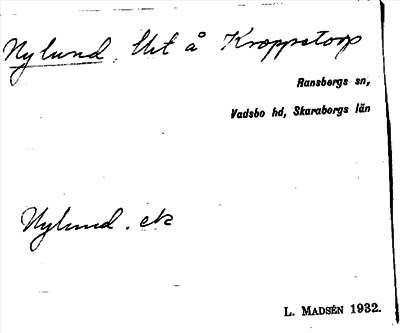 Nylund, Utt å Kroppstorp
Ransbergs sn,
Vadsbo hd, Skaraborgs län
Nylund. ek
L. MADSÉN 1932.